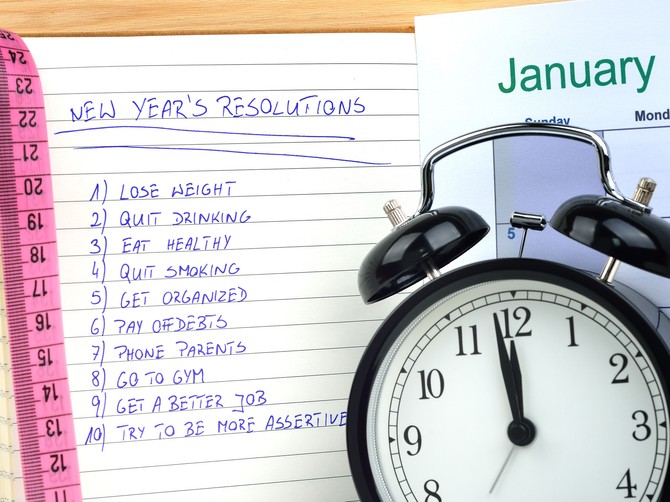 NEW YEAR'S RESOLUTIONS
1) LOSE WEIGHT
2) QUIT DRINKING
3) EAT HEALTHY
4) QUIT SMOKING
5) GET ORGANIZED
6) PAY OFF DEBTS
7) PHONE PARENTS
8) GO TO GYM
9) GET A BETTER JOB
10) TRY TO BE MORE ASSERTIVE
January
Sunday
Mond
5
11 12 1
10 2
9 3
8 4
25
24
23
22
21
20
19
18
17
16
15
14
13
12
11